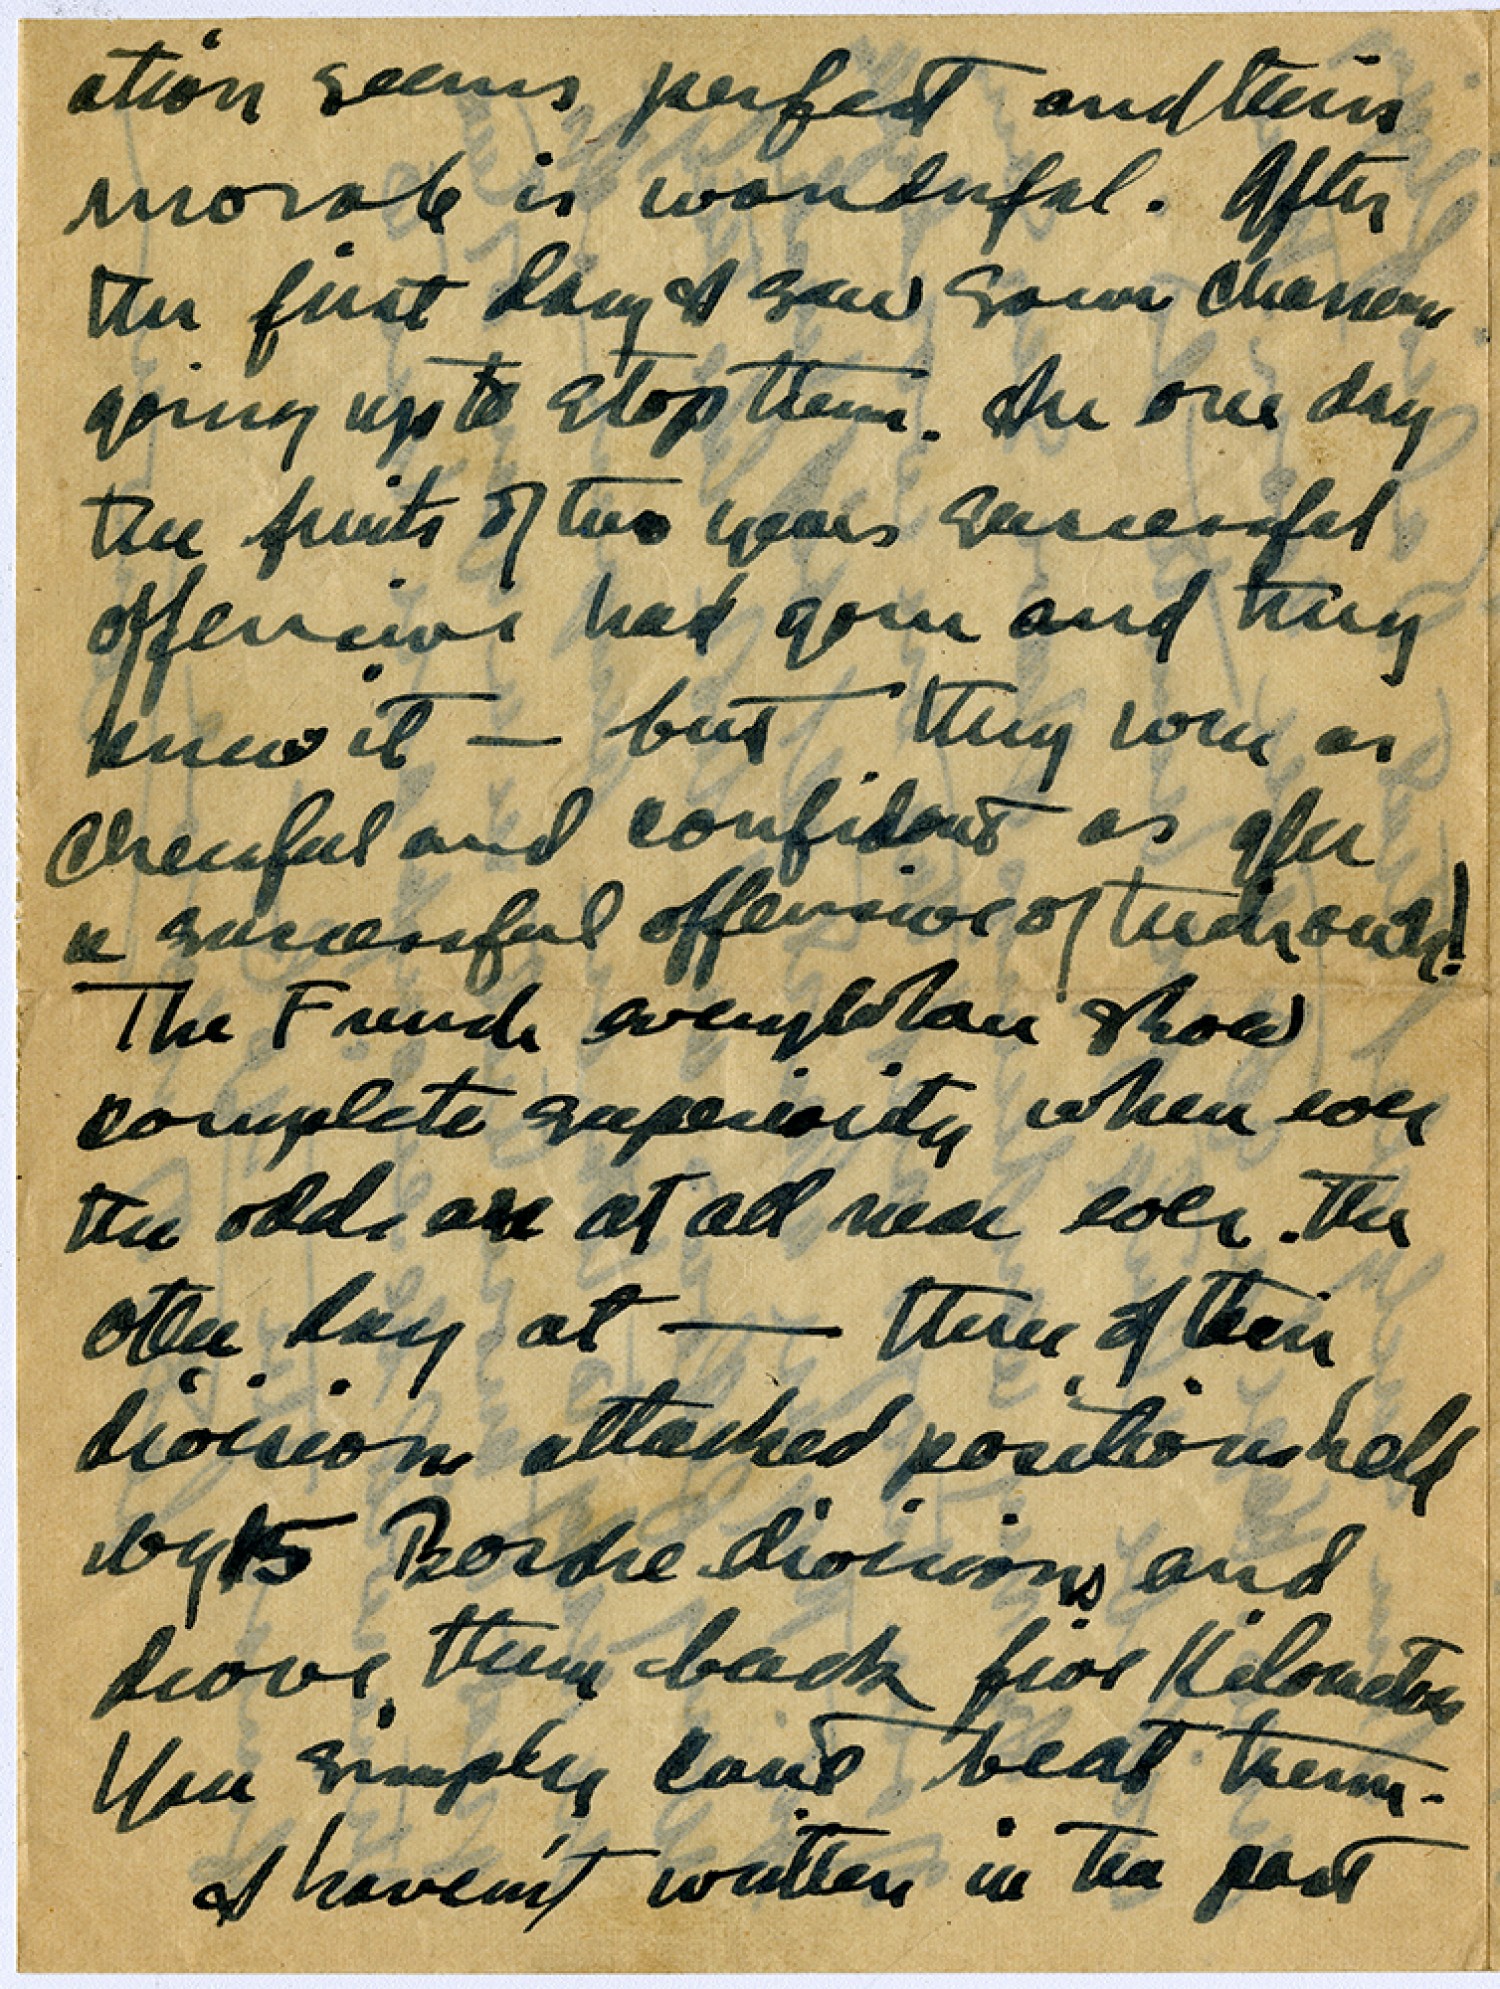 ation seems perfect and their
morale is wonderful. After
the first day I saw some chasseurs
going up to stop them. In one day
the fruits of two years successful
offensive had gone and they
knew it — but they were as
cheerful and confident as after
a successful offensive of their own!
The French everywhere show
complete superiority when ever
the odds are at all near even. The
other day at — three of their
divisions attacked positions held
by 15 Boche divisions and
drove them back five Kilometers
You simply can't beat them.
I haven't written in the past